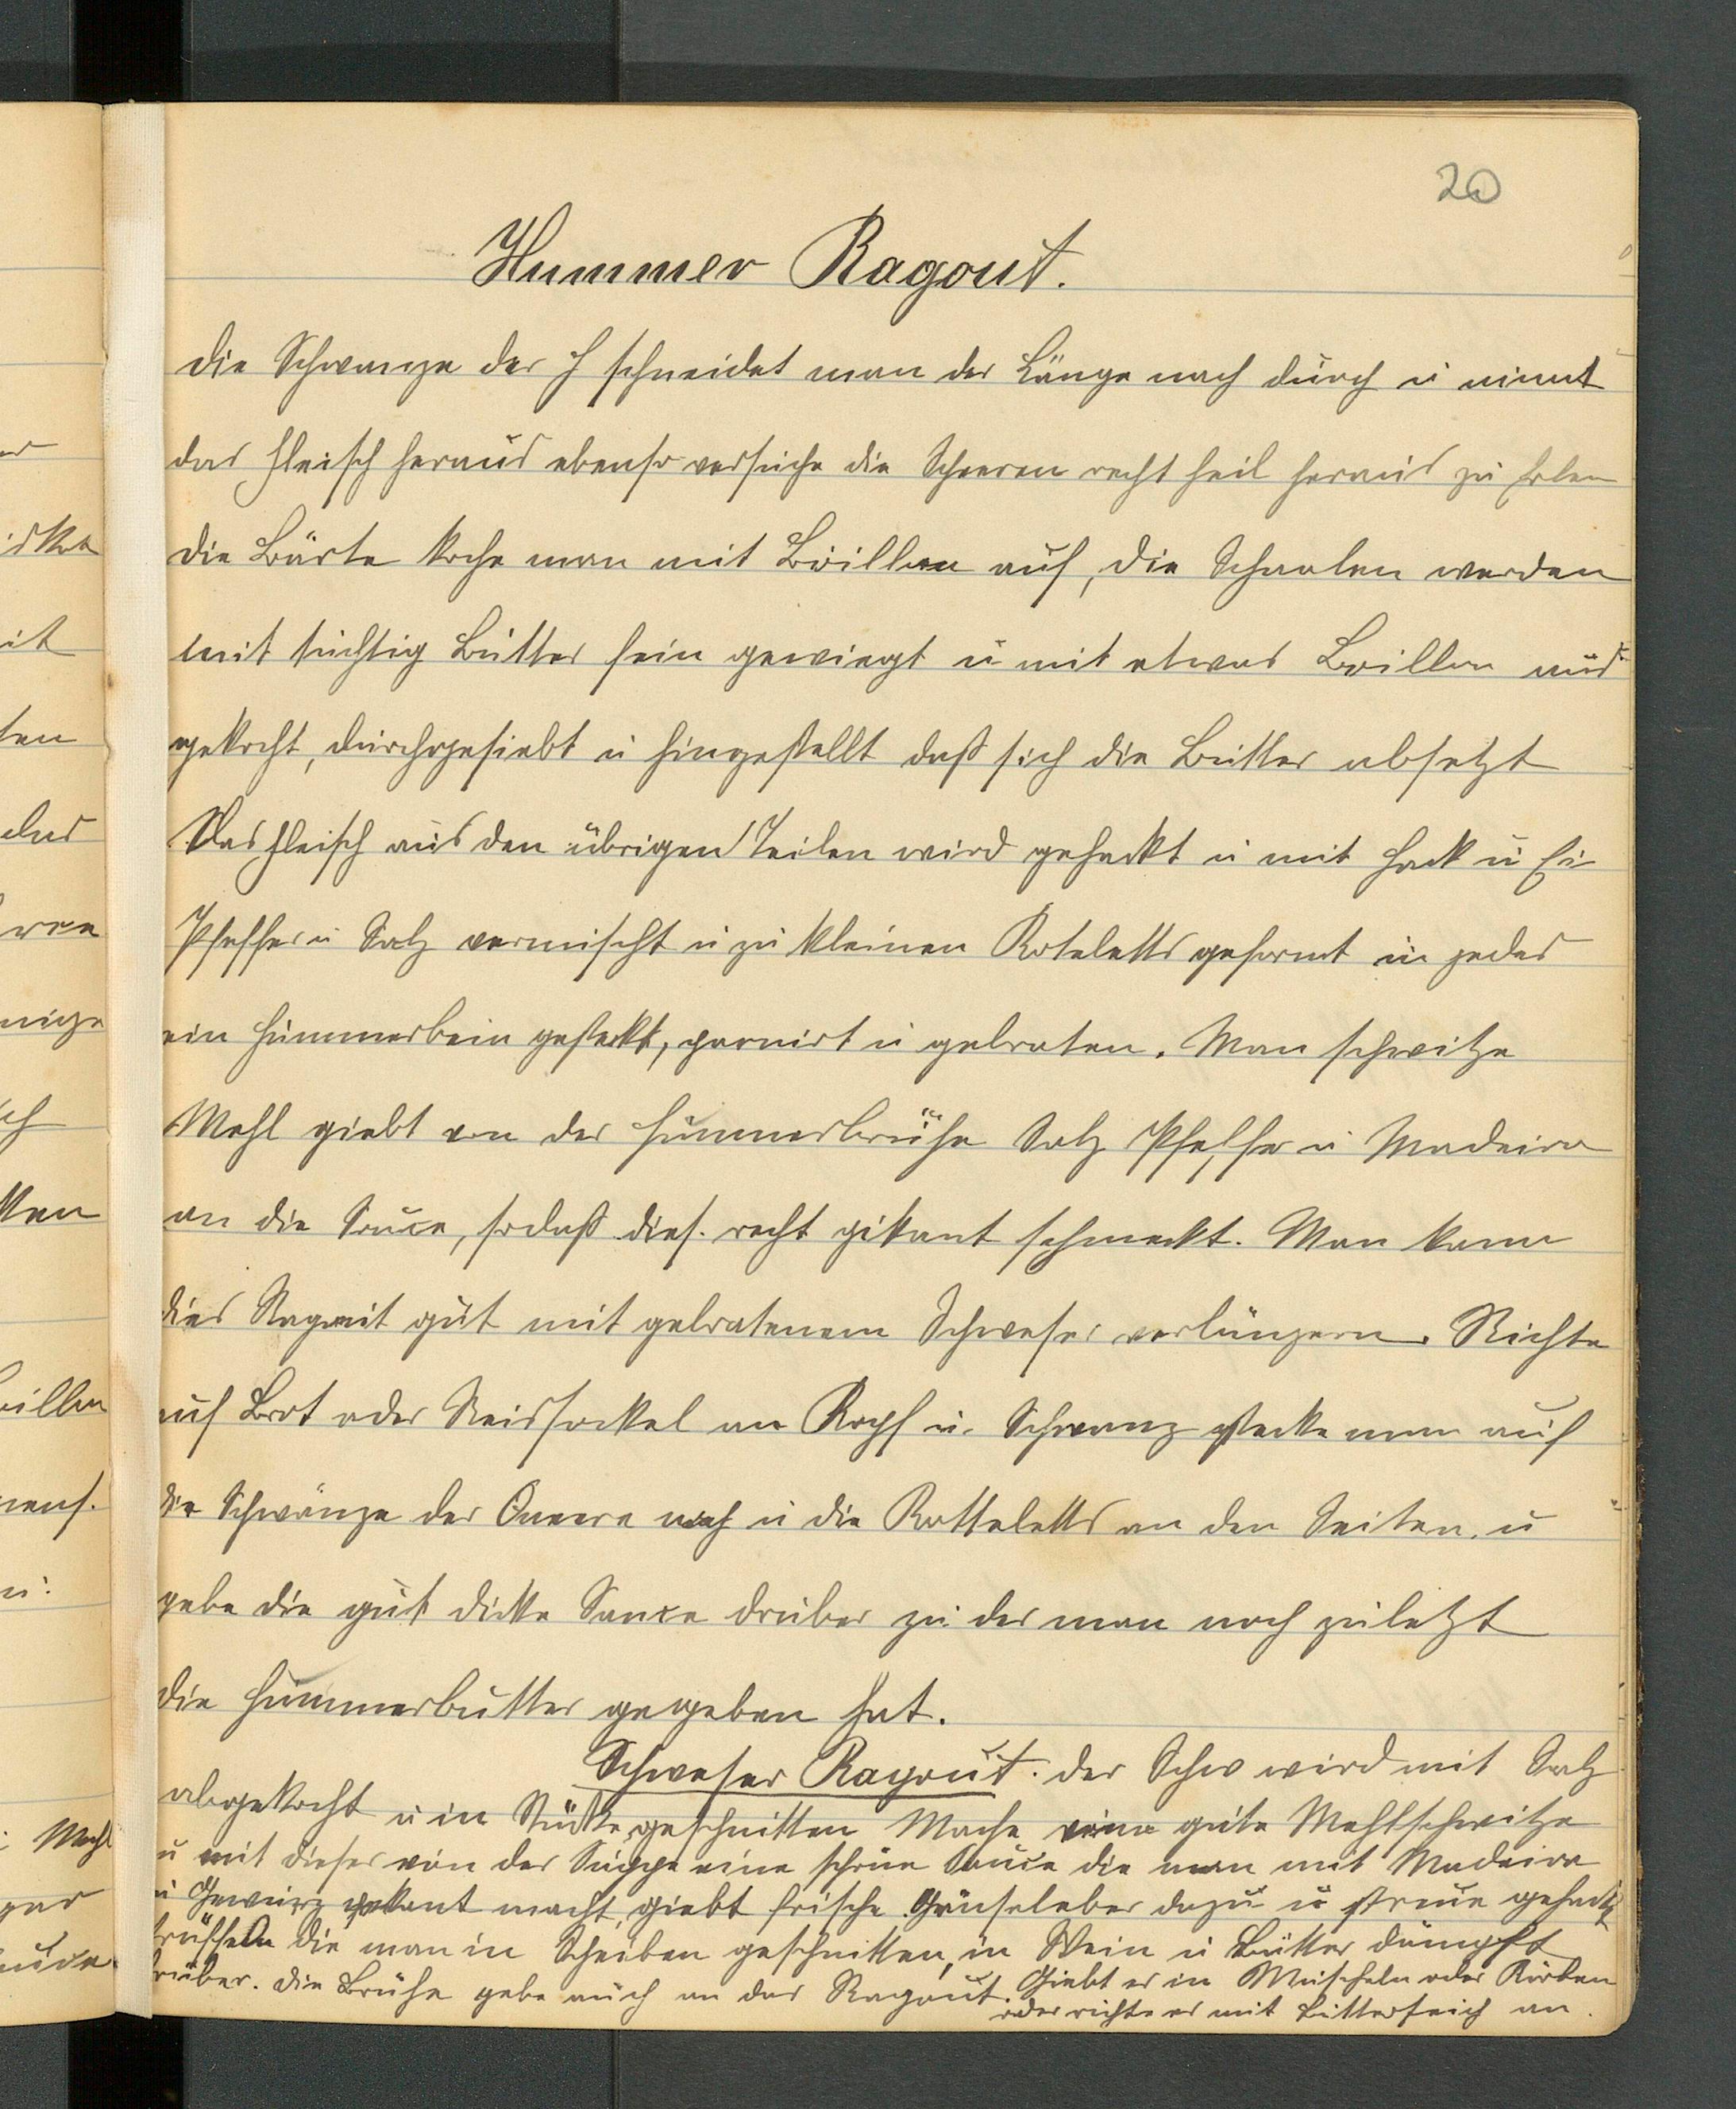 20
Hummer Ragout.
die Schwanze der H schneidet man der Länge nach durch u nimmt
das Fleisch heraus ebenso versuche die Scheeren recht heil heraus zu holen
die Bärte koche man mit Boillon auf, die Schaalen werden
mit tüchtig Butter fein gewiegt u mit etwas Boillon aus
gekocht, durchgesiebt u hingestellt daß sich die Butter absetzt
Das Fleisch aus den übrigen Teilen wird gehackt u mit Hack u Ei
Pfeffer u Salz vermischt u zu kleinen Koteletts geformt in jedes
ein Hummerbein gesteckt, parnirt u gebraten. Man schwitze
Mehl giebt von der Hummerbrühe Salz Pfeffer u Madeira
an die Sauce, sodaß dies. recht pikant schmeckt. Man kann
dies Ragout gut mit gebratenem Schweser verlängern. Richte
auf Brot oder Reissockel an Kopf u. Schwanz stecke man auf
die Schwänze der Queere nach u die Kotteletts an den Seiten. u
gebe die gut dicke Sauce drüber zu der man noch zuletzt
die Hummerbutter gegeben hat.
Schweser Ragout. der Schw wird mit Salz
abgekocht u in Stücke geschnitten Mache eine gute Mehlschwitze
u mit dieser von der Suppe eine schöne Sauce die man mit Madeira
u Gewürz pikant macht, giebt frische Gänseleber dazu u streue gehackte
trüffeln die man in Scheiben geschnitten, in Wein u Butter dämpft
rüber. die Brühe gebe auch an das Ragout. Giebt es in Muscheln oder Körben
oder richte es mit Butterteich an.